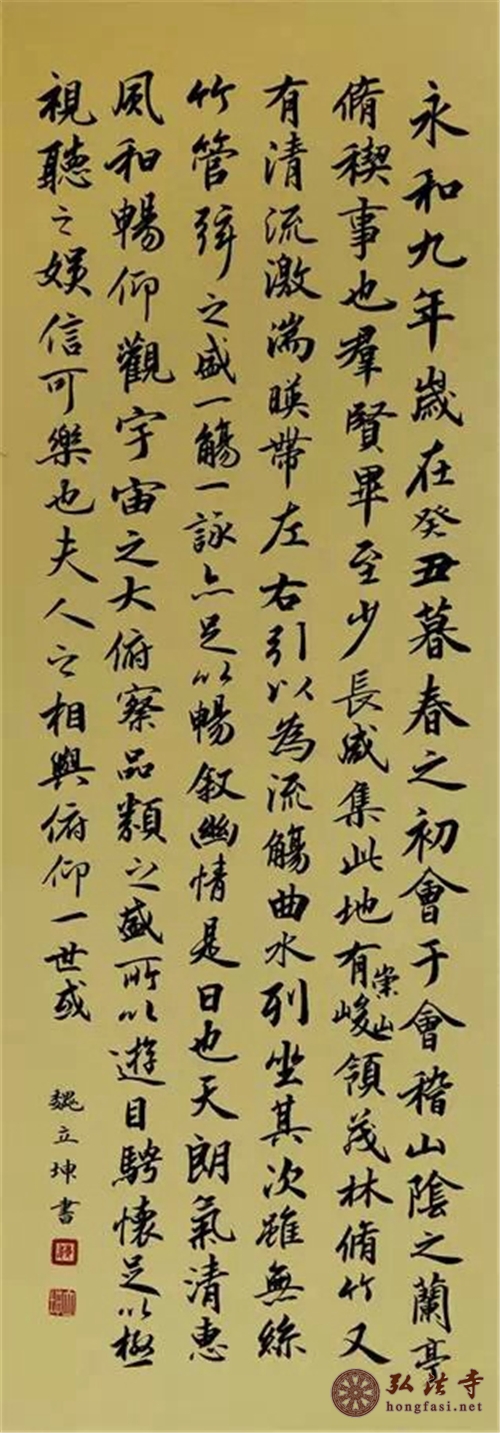 永和九年歲在癸丑暮春之初會于會稽山陰之蘭亭
脩稧事也羣賢畢至少長咸集此地有崇山峻領茂林脩竹又
有清流激湍暎帶左右引以為流觴曲水列坐其次雖無絲
竹管弦之盛一觴一詠亦足以暢叙幽情是日也天朗氣清惠
風和暢仰觀宇宙之大俯察品類之盛所以遊目騁懷足以極
視聽之娛信可樂也夫人之相與俯仰一世或
魏立坤書
弘法寺
hongfasi.net